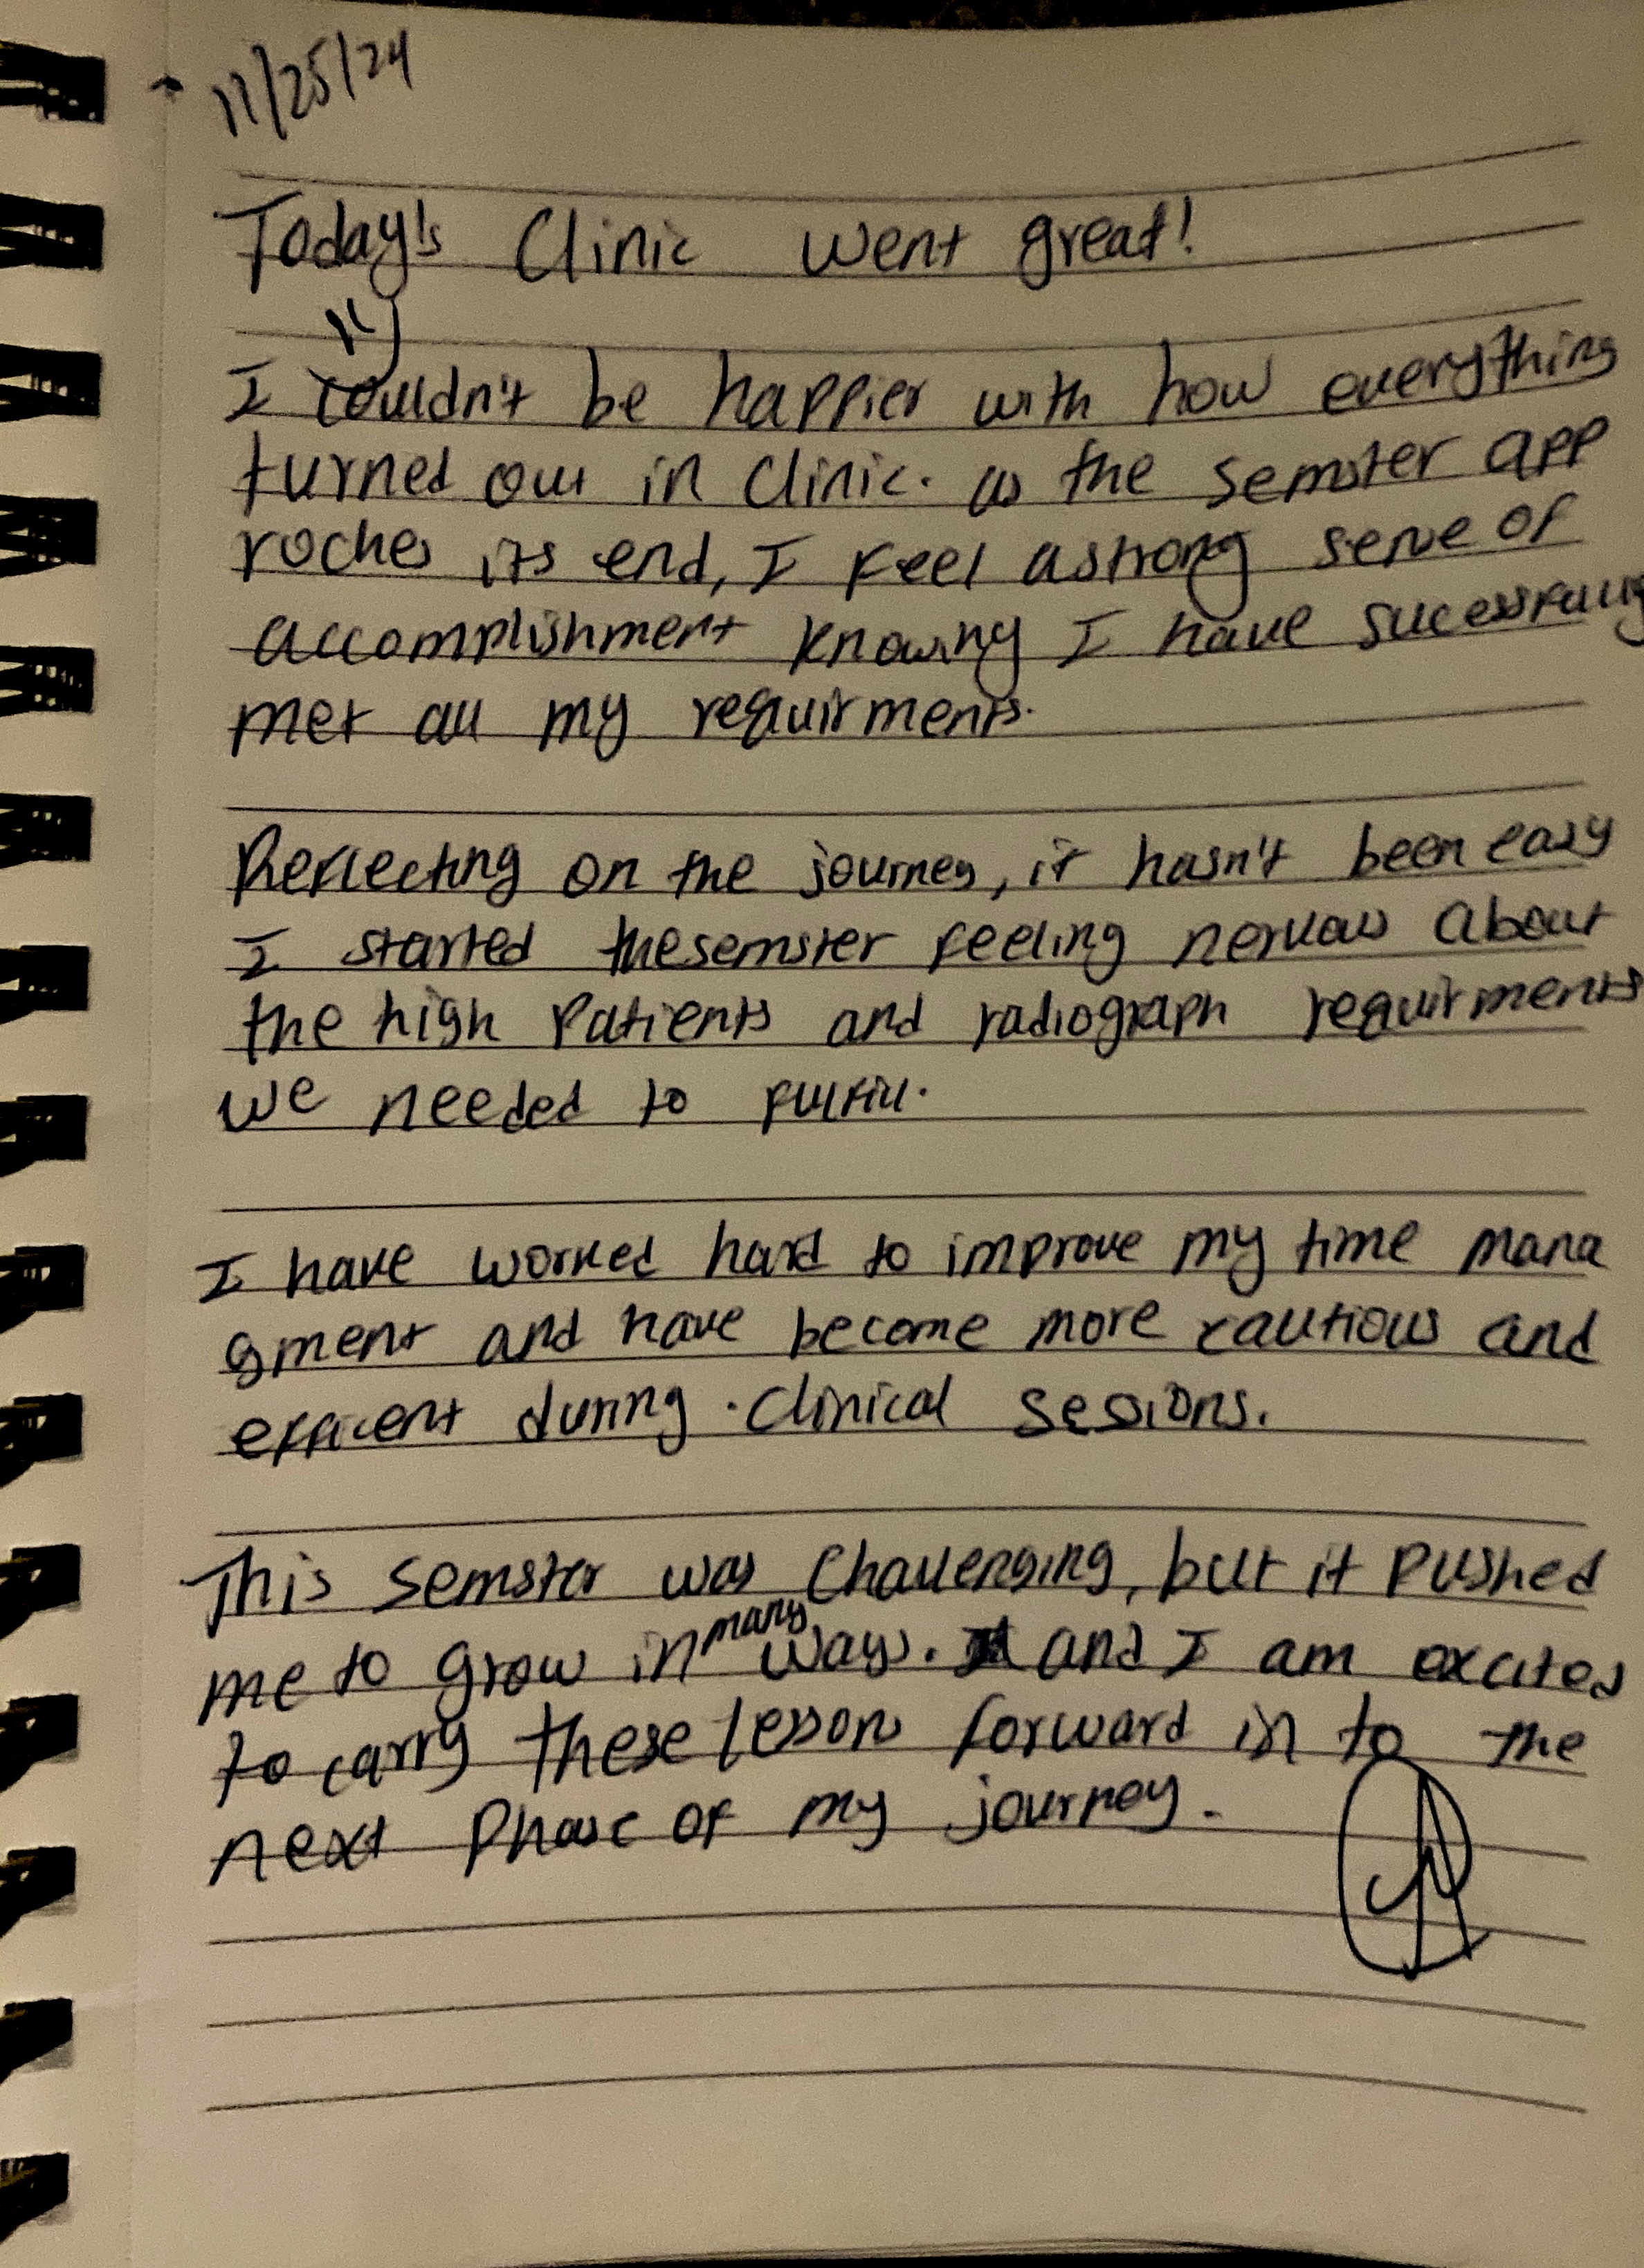 11/25/24
Today's Clinic went great!
I couldn't be happier with how everything
turned out in clinic. as the semster app
roches its end, I feel a strong sense of
accomplishment knowing I have sucessfully
met all my requirments.
Reflecting on the journey, it hasn't been easy
I started the semster feeling nervous about
the high patients and radiograph requirments
we needed to fulfill.
I have worked hard to improve my time mana
gment and have become more cautious and
efficent during clinical sessions.
This semster was challenging, but it pushed
me to grow in many ways. and I am excited
to carry these lesson forward in to the
next phase of my journey.